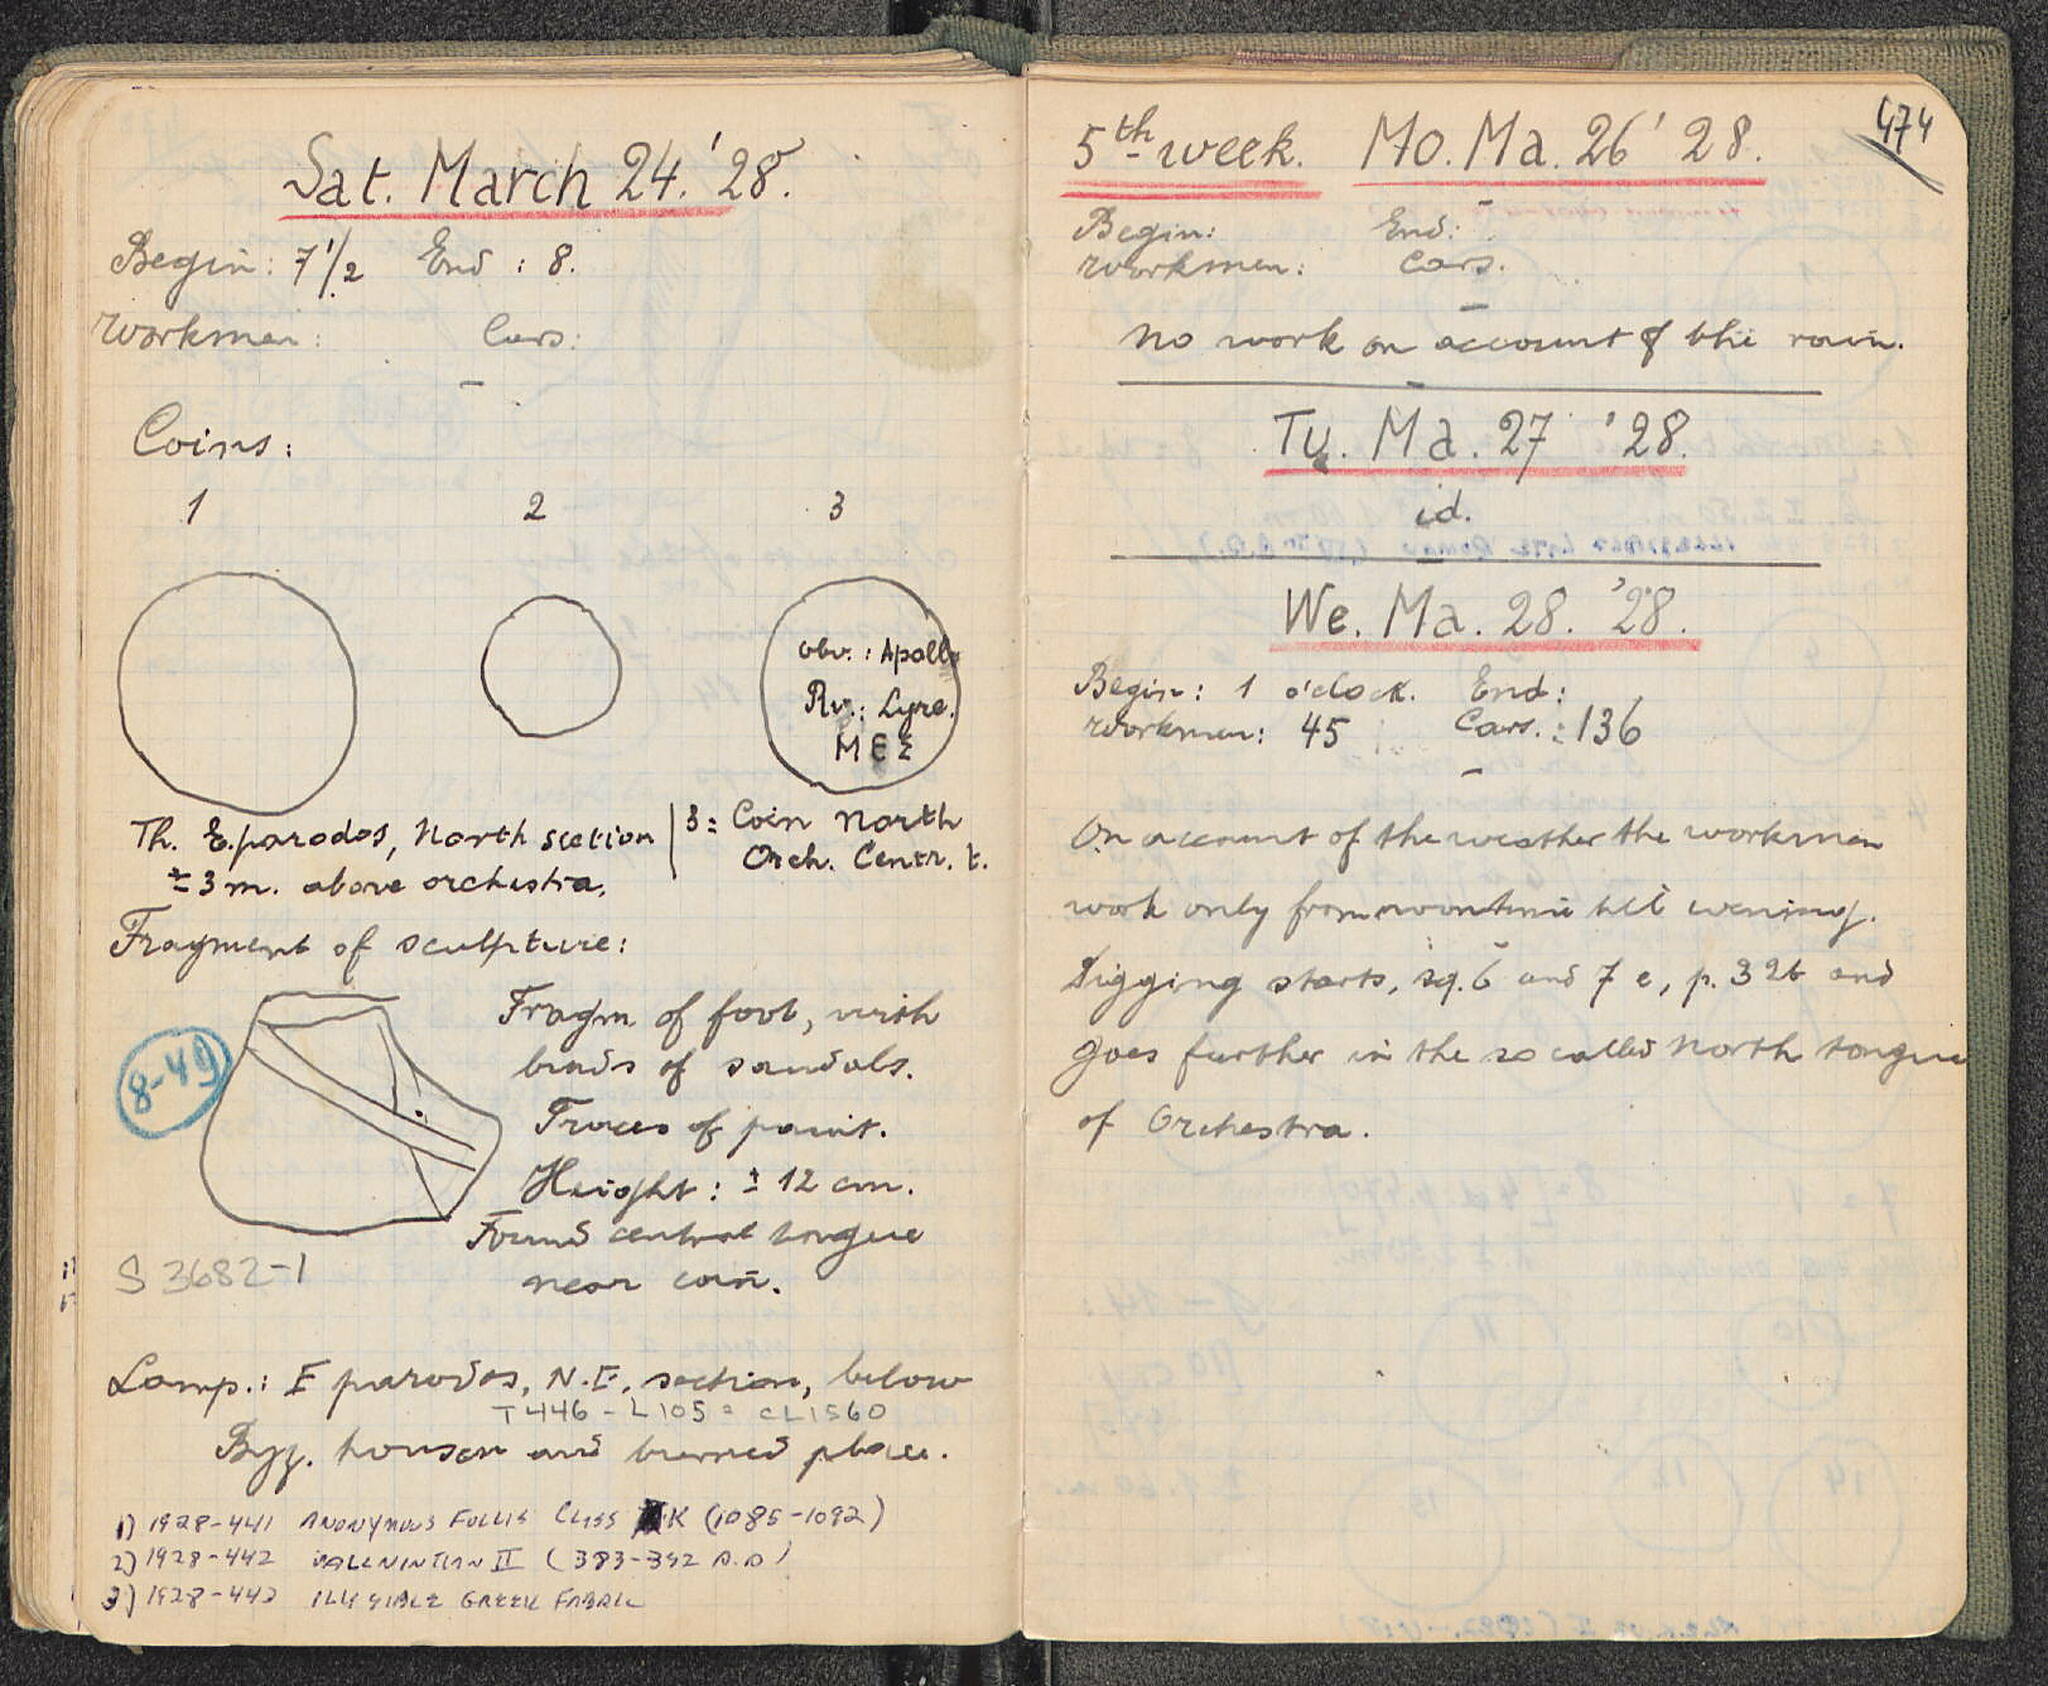 Sat. March 24. '28.
Begin: 7 1/2 End : 8.
Workmen: Cars:
Coins:
1 2 3
obv. : Apollo
Rv.: Lyre.
M E Σ
Th. E. parodos, North section
± 3 m. above orchestra.
3 = Coin North
Orch. Centr. t.
Fragment of sculpture:
8-49
Fragm of foot, with
bands of sandals.
Traces of paint.
Height : ± 12 cm.
Found central tongue
near coin.
S 3682-1
Lamp.: E parodos, N.E. section, below
T 446 - L 105 = CL 1560
Byz. houses and burned place.
1) 1928-441 ANONYMOUS FOLLIS CLASS K (1085-1092)
2) 1928-442 VALENINTIAN II (383-392 A.D)
3) 1928-443 ILLEGIBLE GREEK FABRIC
474
5th week. Mo. Ma. 26 '28.
Begin: End:
Workmen: Cars.
No work on account of the rain.
Tu. Ma. 27 '28.
id.
We. Ma. 28. '28.
Begin: 1 o'clock. End:
Workmen: 45 Cars. : 136
On account of the weather the workmen
work only from noontime till evening.
Digging starts, sq. 6 and 7 e, p. 326 and
goes further in the so called North tongue
of Orchestra.